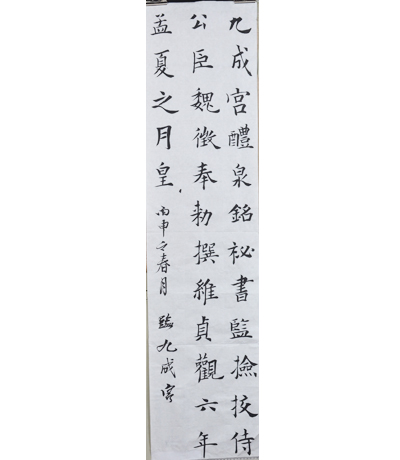 九成宫醴泉銘祕書監撿挍侍
公臣魏徵奉勑撰維貞觀六年
孟夏之月皇
丙申之春月 臨九成宮